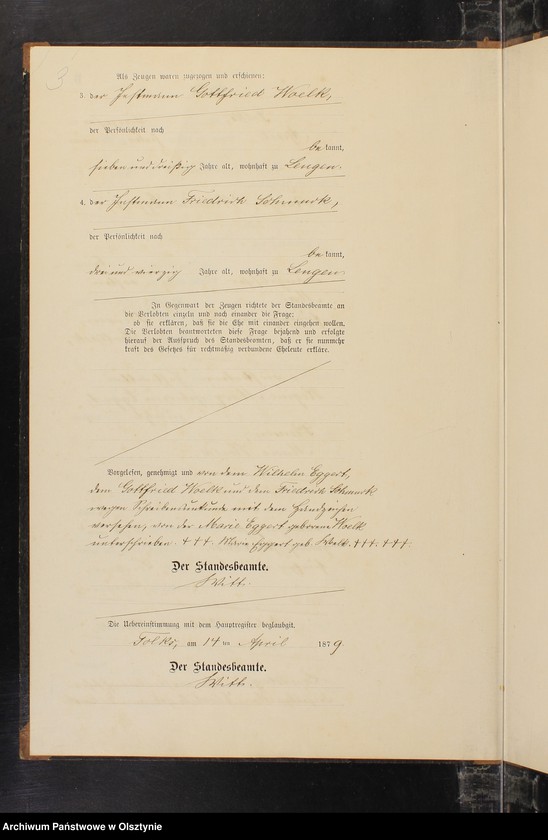 3
Als Zeugen waren zugezogen und erschienen:
3. der Instmann Gottfried Woelk,
der Persönlichkeit nach
be kannt,
sieben und dreißig Jahre alt, wohnhaft zu Lengen.
4. der Instmann Friedrich Schmuck,
der Persönlichkeit nach
be kannt,
drei und vierzig Jahre alt, wohnhaft zu Lengen.
In Gegenwart der Zeugen richtete der Standesbeamte an
die Verlobten einzeln und nach einander die Frage:
ob sie erklären, daß sie die Ehe mit einander eingehen wollen.
Die Verlobten beantworteten diese Frage bejahend und erfolgte
hierauf der Ausspruch des Standesbeamten, daß er sie nunmehr
kraft des Gesetzes für rechtmäßig verbundene Eheleute erkläre.
Vorgelesen, genehmigt und von dem Wilhelm Eggert,
dem Gottfried Woelk und dem Friedrich Schmuck
wegen Schreibensunkunde mit dem Handzeichen
versehen, von der Marie Eggert geborene Woelk
unterschrieben. +++. Marie Eggert geb. Woelk. +++. +++.
Der Standesbeamte.
Witt.
Die Uebereinstimmung mit dem Hauptregister beglaubigt.
am 14 ten April 1879
Der Standesbeamte.
Witt.
Archiwum Państwowe w Olsztynie